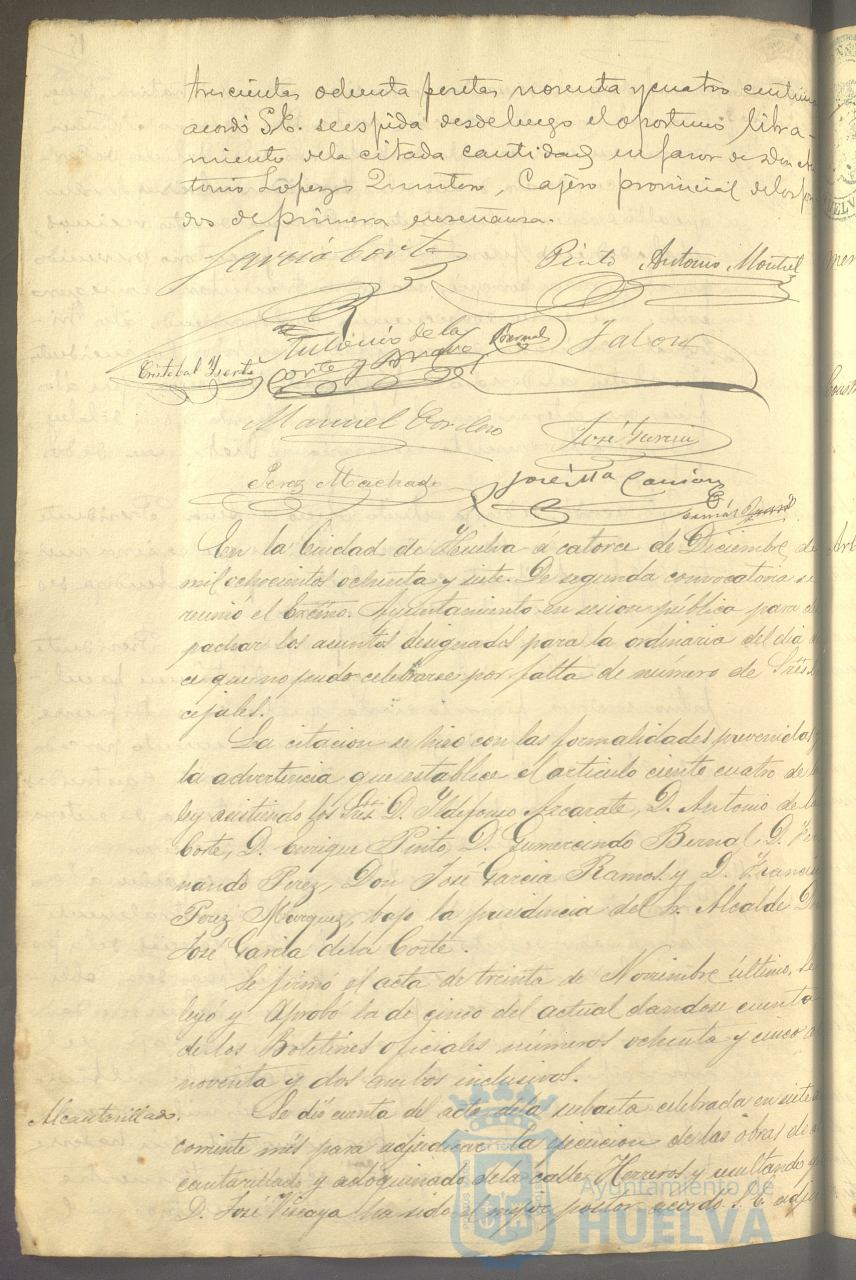 trescientas ochenta pesetas noventa y cuatro centimos
acordó S.E. se espida desde luego el oportuno libra-
miento de la citada cantidad en favor de Don An
tonio Lopez Quintero, Cajero provincial de los fon
dos de primera enseñanza.
García Corte
Pinto Antonio Montiel
Cristobal Antonio de la Corte y Bernal Jalon
Manuel Cordero José Garcia
Perez Machado José Mª
En la Ciudad de Huelva á catorce de Diciembre de
mil ochocientos ochenta y siete. De segunda convocatoria se
reunió el Excmo. Ayuntamiento en sesion pública para des
pachar los asuntos designados para la ordinaria del dia
ce que no pudo celebrarse por falta de número de Sres.
cejales.
La citacion se hizo con las formalidades prevenidas y
la advertencia que establece el articulo ciento cuatro de la
ley asistiendo los Sres. D. Ildefonso Azcarate, D. Antonio de la
Corte, D. Enrique Pinto, D. Gumercindo Bernal, D. Fer
nando Perez, Don José Garcia Ramos y D. Francisco
Perez Marquez, bajo la presidencia del Sr. Alcalde Don
José Garcia de la Corte.
Se firmó el acta de treinta de Noviembre último, se
leyó y aprobó la de cinco del actual dandose cuenta
de los Boletines oficiales números ochenta y cinco a
noventa y dos ambos inclusivos.
Alcantarillado.
Se dió cuenta del acta de la subasta celebrada en siete
corriente mes para adjudicar la ejecucion de las obras de
cantarillado y adoquinado de la calle Herreros y resultando
D. José Vizcaya ha sido el mejor postor acordó S.E. adju
Ayuntamiento de
HUELVA